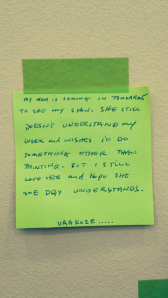 MY MOM IS COMING IN TOMORROW
TO SEE MY SHOW. SHE STILL
DOESN'T UNDERSTAND MY
WORK AND WISHES I'D DO
SOMETHING OTHER THAN
PAINTING. BUT I STILL
LOVE HER AND HOPE SHE
ONE DAY UNDERSTANDS.